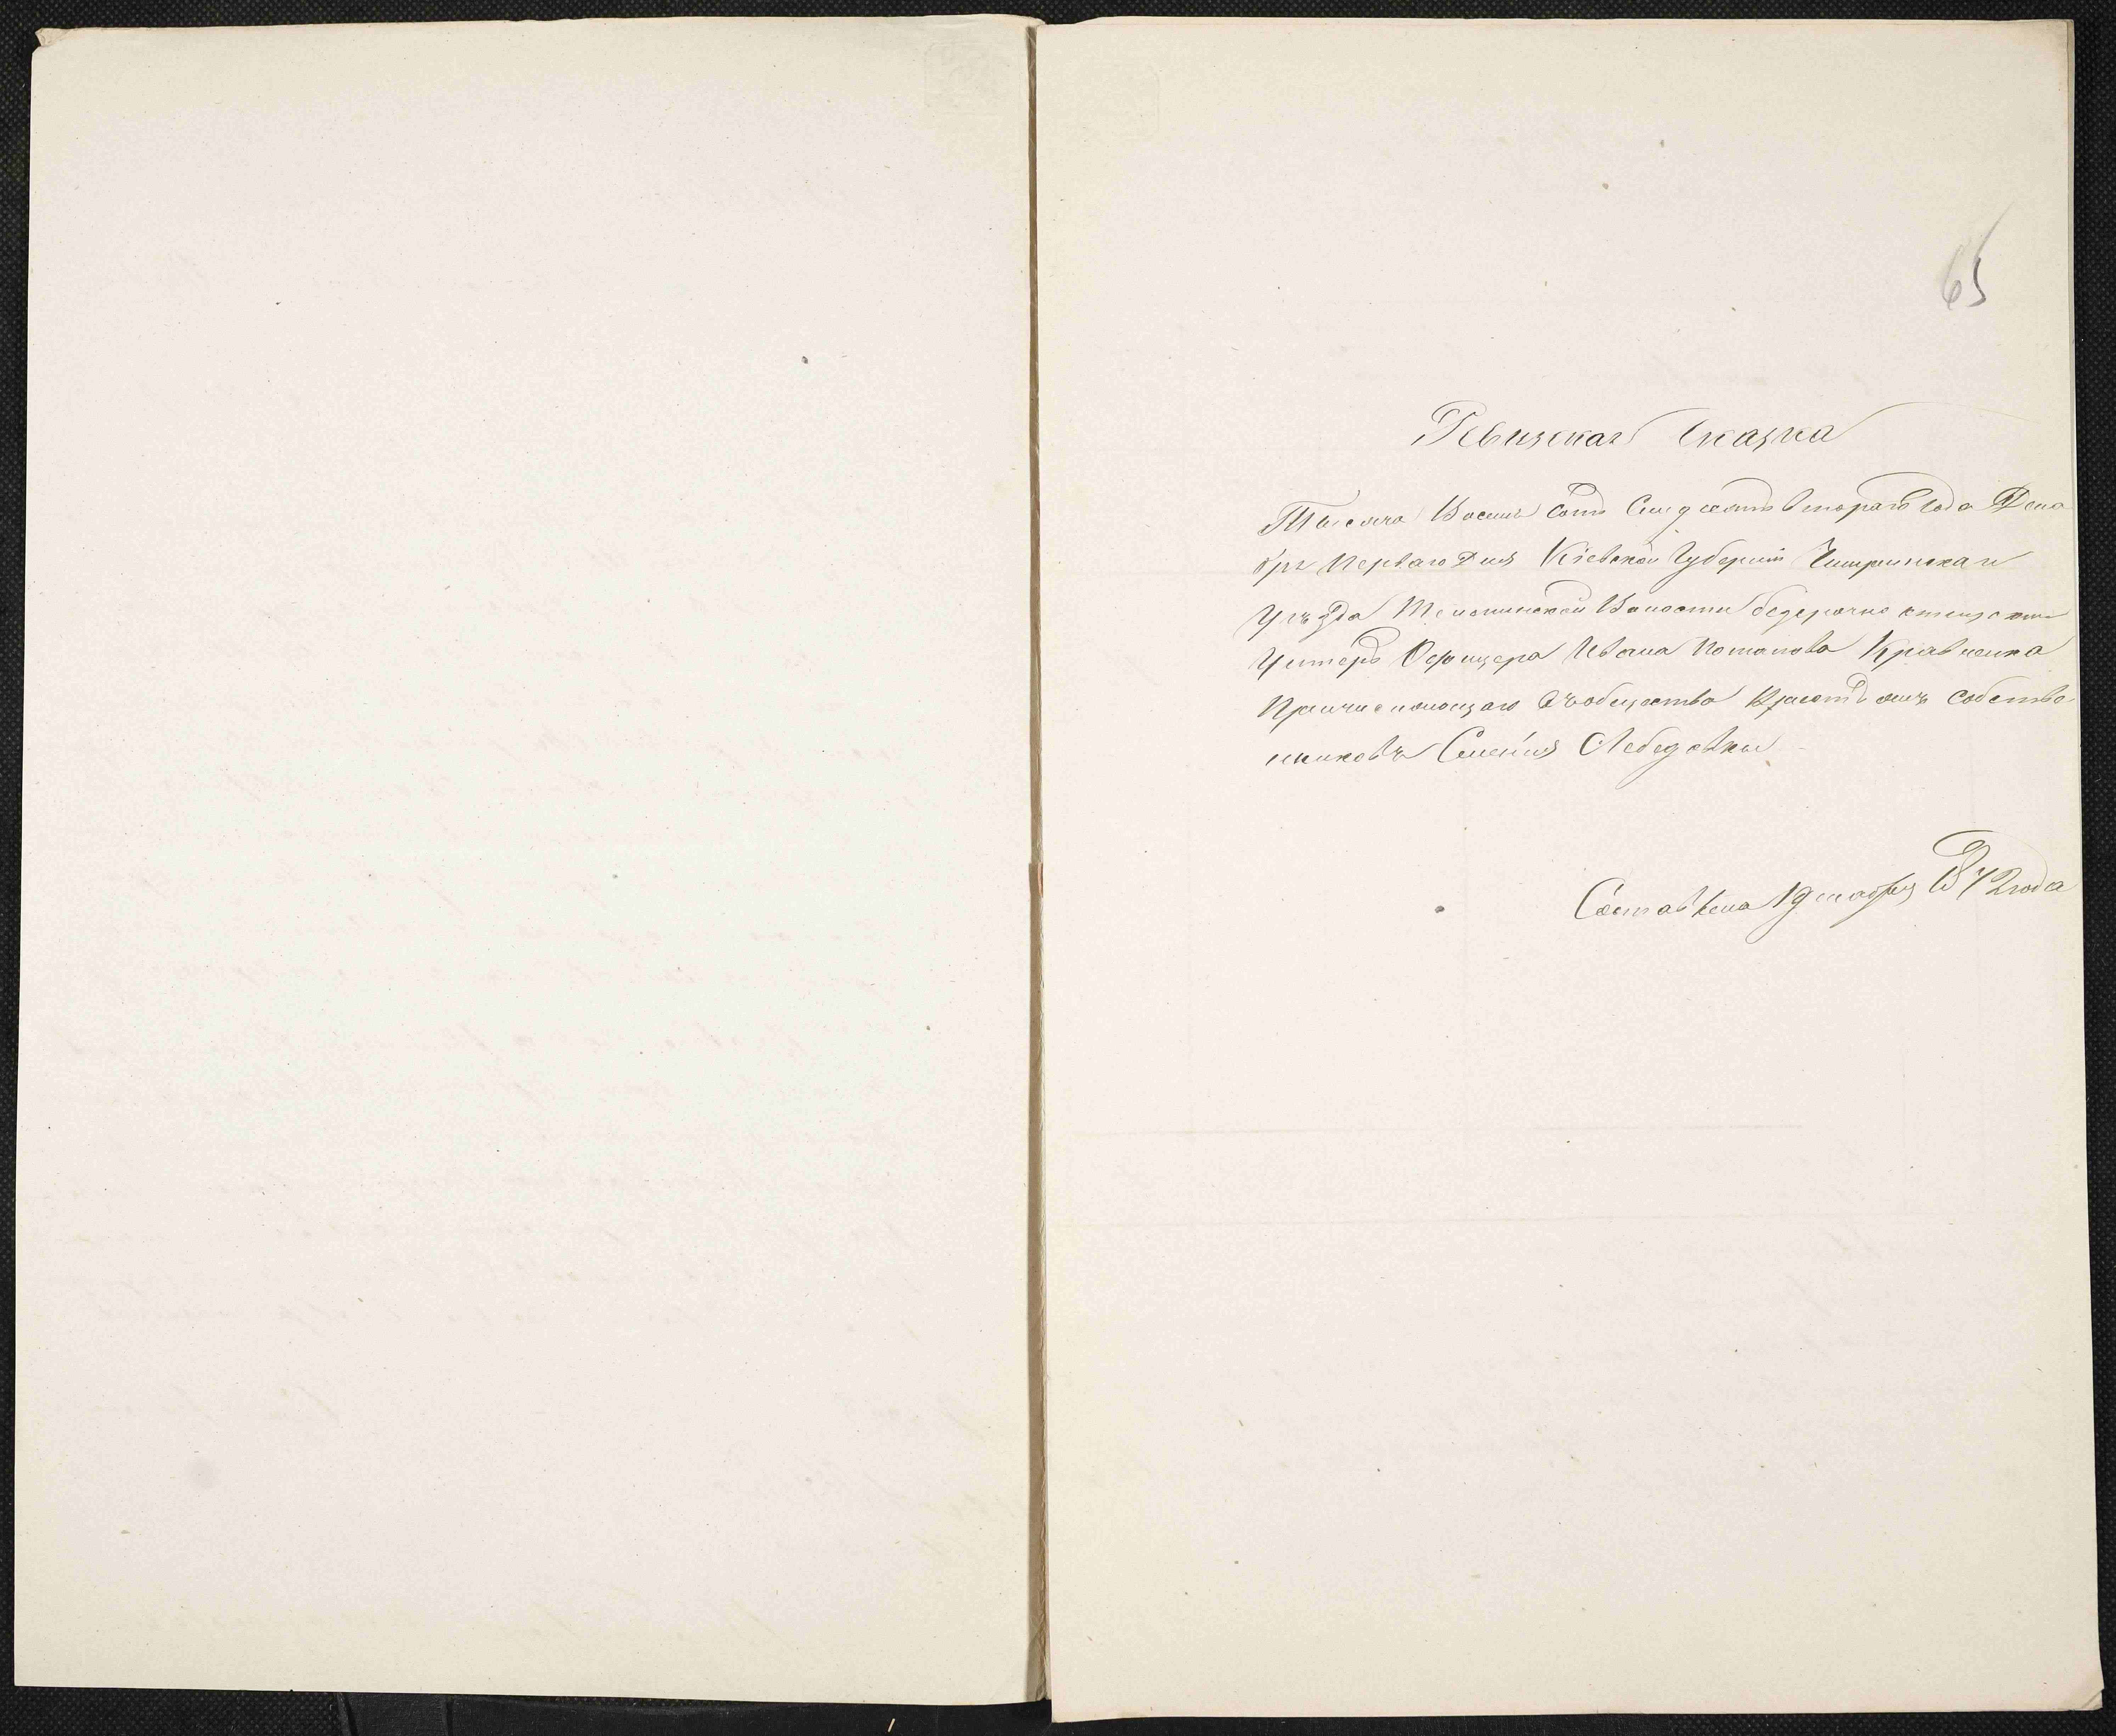 65
Ревизская Сказка
Тысяча Восемь Сотъ Семдесятъ Втораго Года Дека
бря Перваго Дня Кіевской Губерніи Чигринскаи
Уѣзда Телепинской Волости безсрочно отпускн
Унтеръ Офицера Ивана Потапова Кравченка
Причисляющаго Въ общества Крестьянъ Собстве
нниковъ Селенія Лебедовки
Составлена 1 декабря 1872 года